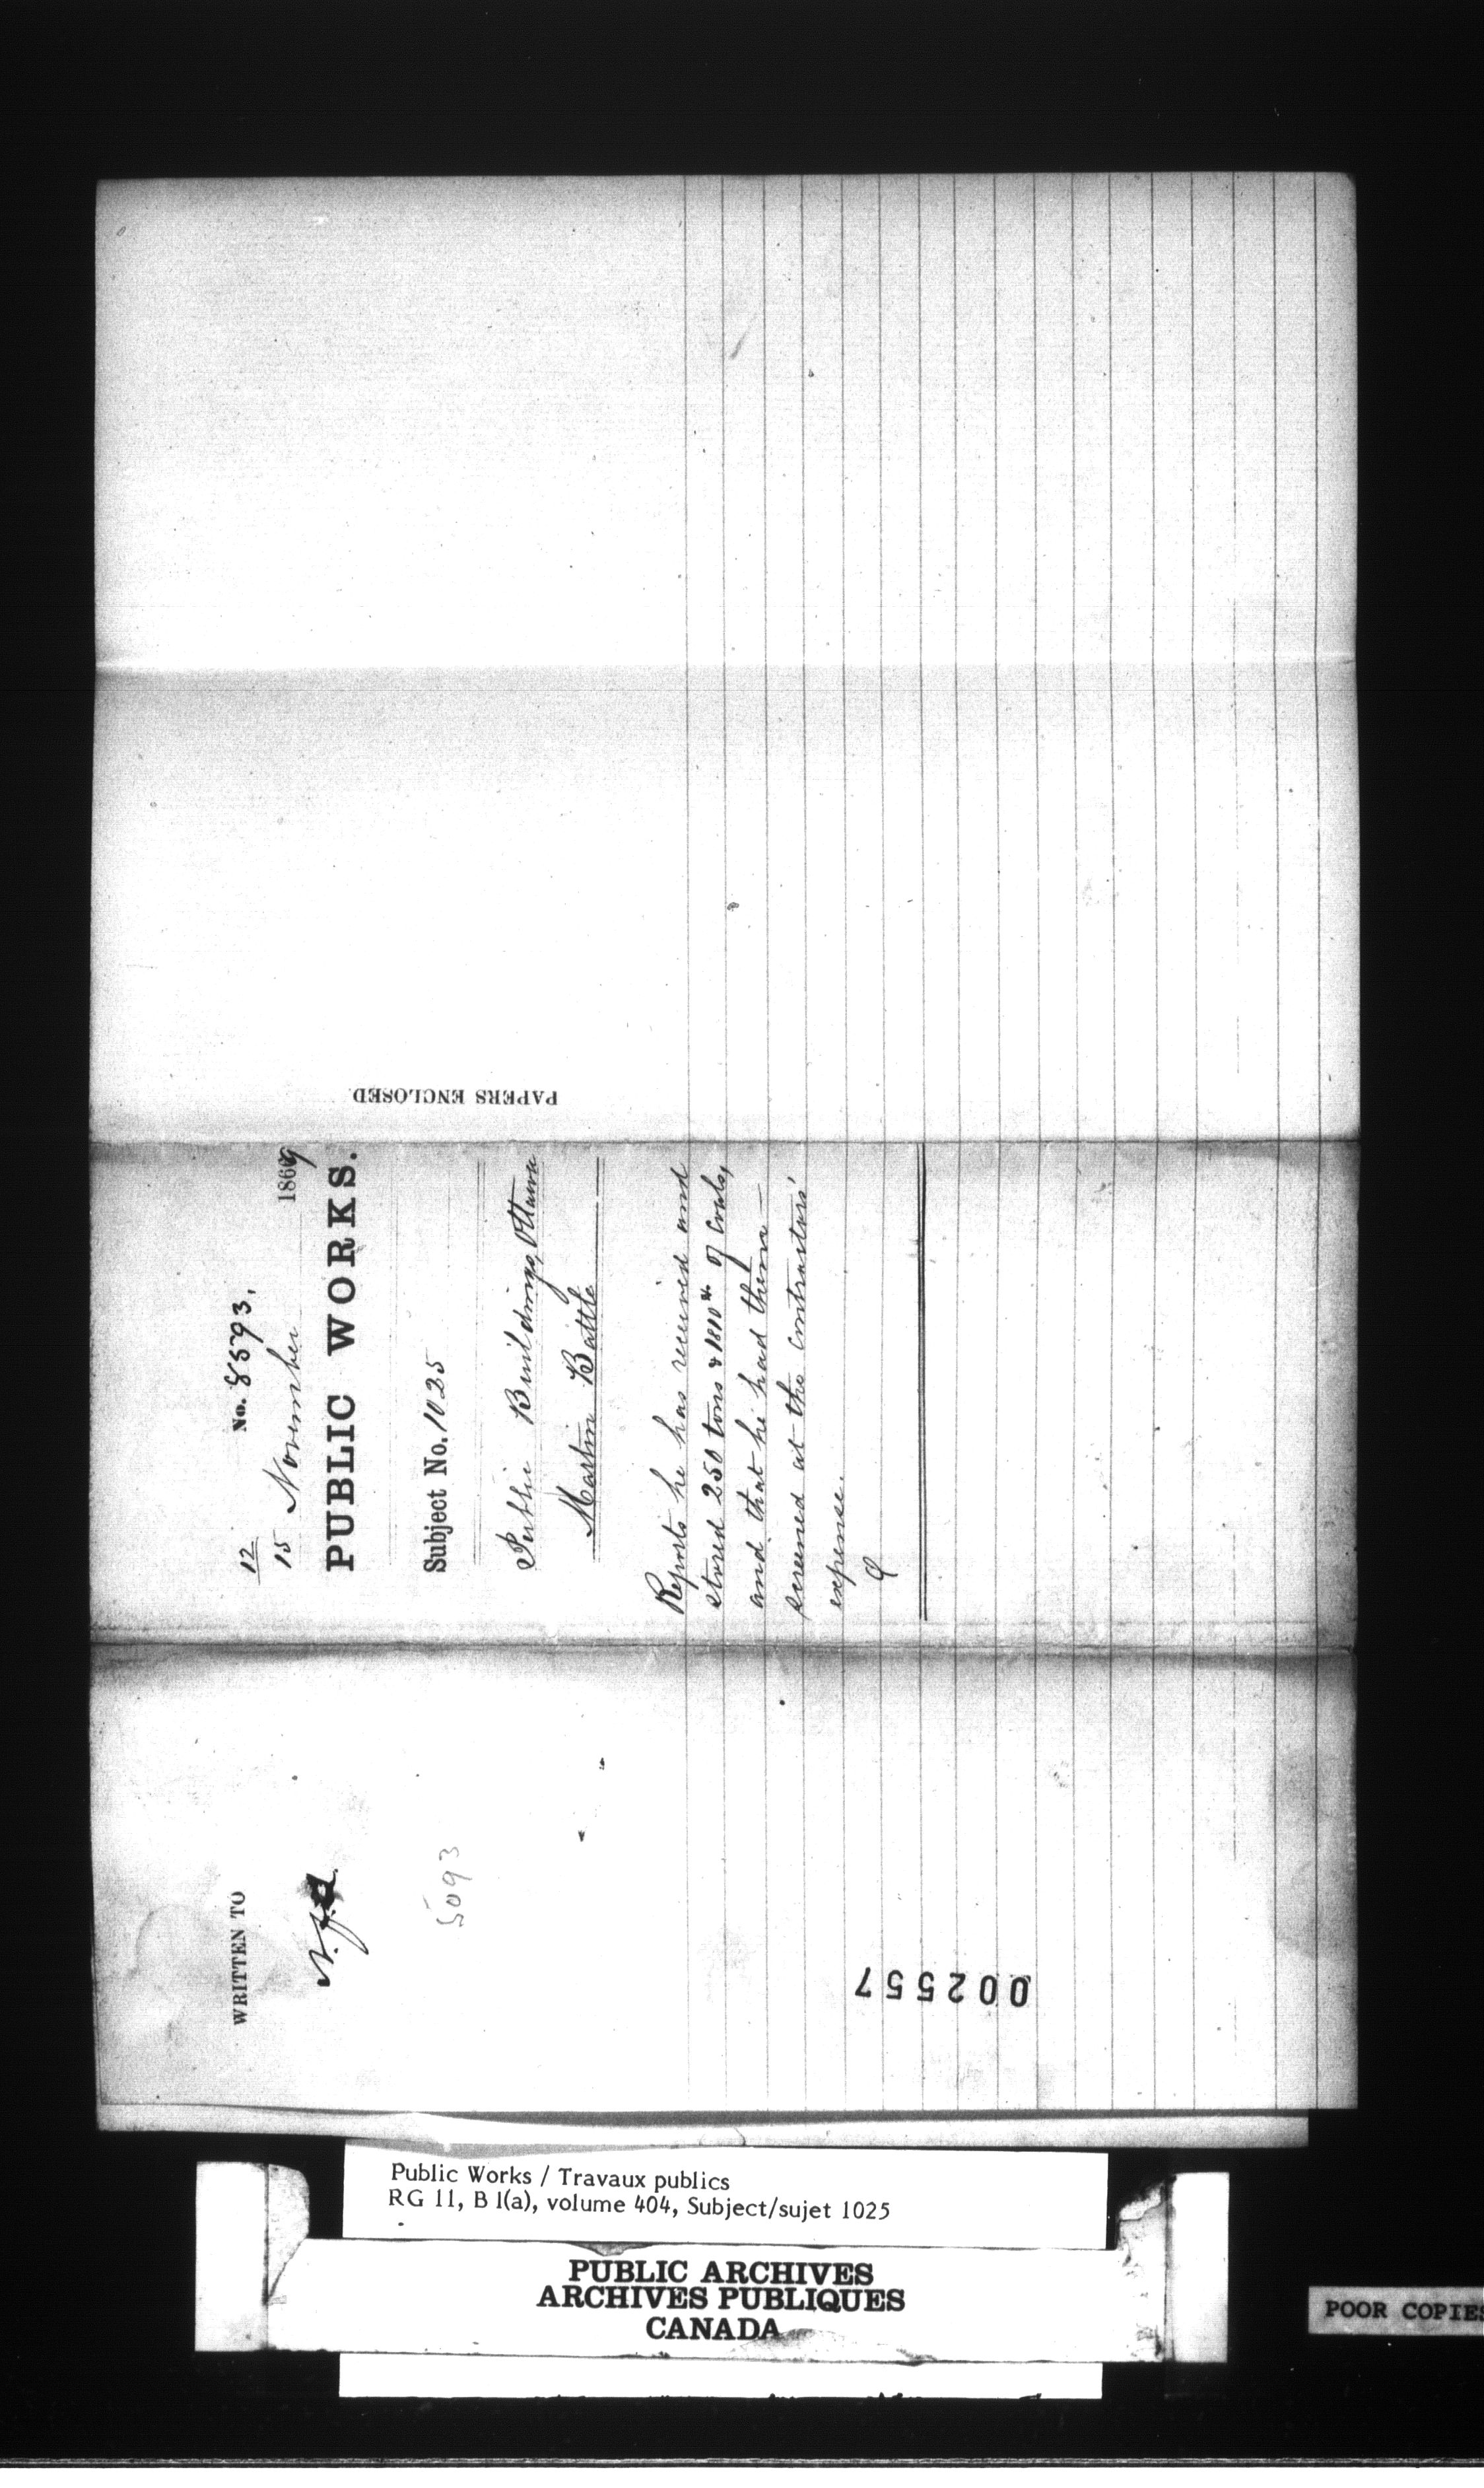 PAPERS ENCLOSED.
No. 8593,
12
15 November 1869
PUBLIC WORKS.
Subject No. 1025
Public Buildings, Ottawa
Martin Battle
Reports he has received and
stored 250 tons & 1810 of coals,
and that he had them —
screened at the contractors'
expense.
WRITTEN TO
5093
002557
Public Works / Travaux publics
RG 11, B 1(a), volume 404, Subject/sujet 1025
PUBLIC ARCHIVES
ARCHIVES PUBLIQUES
CANADA
POOR COPIES